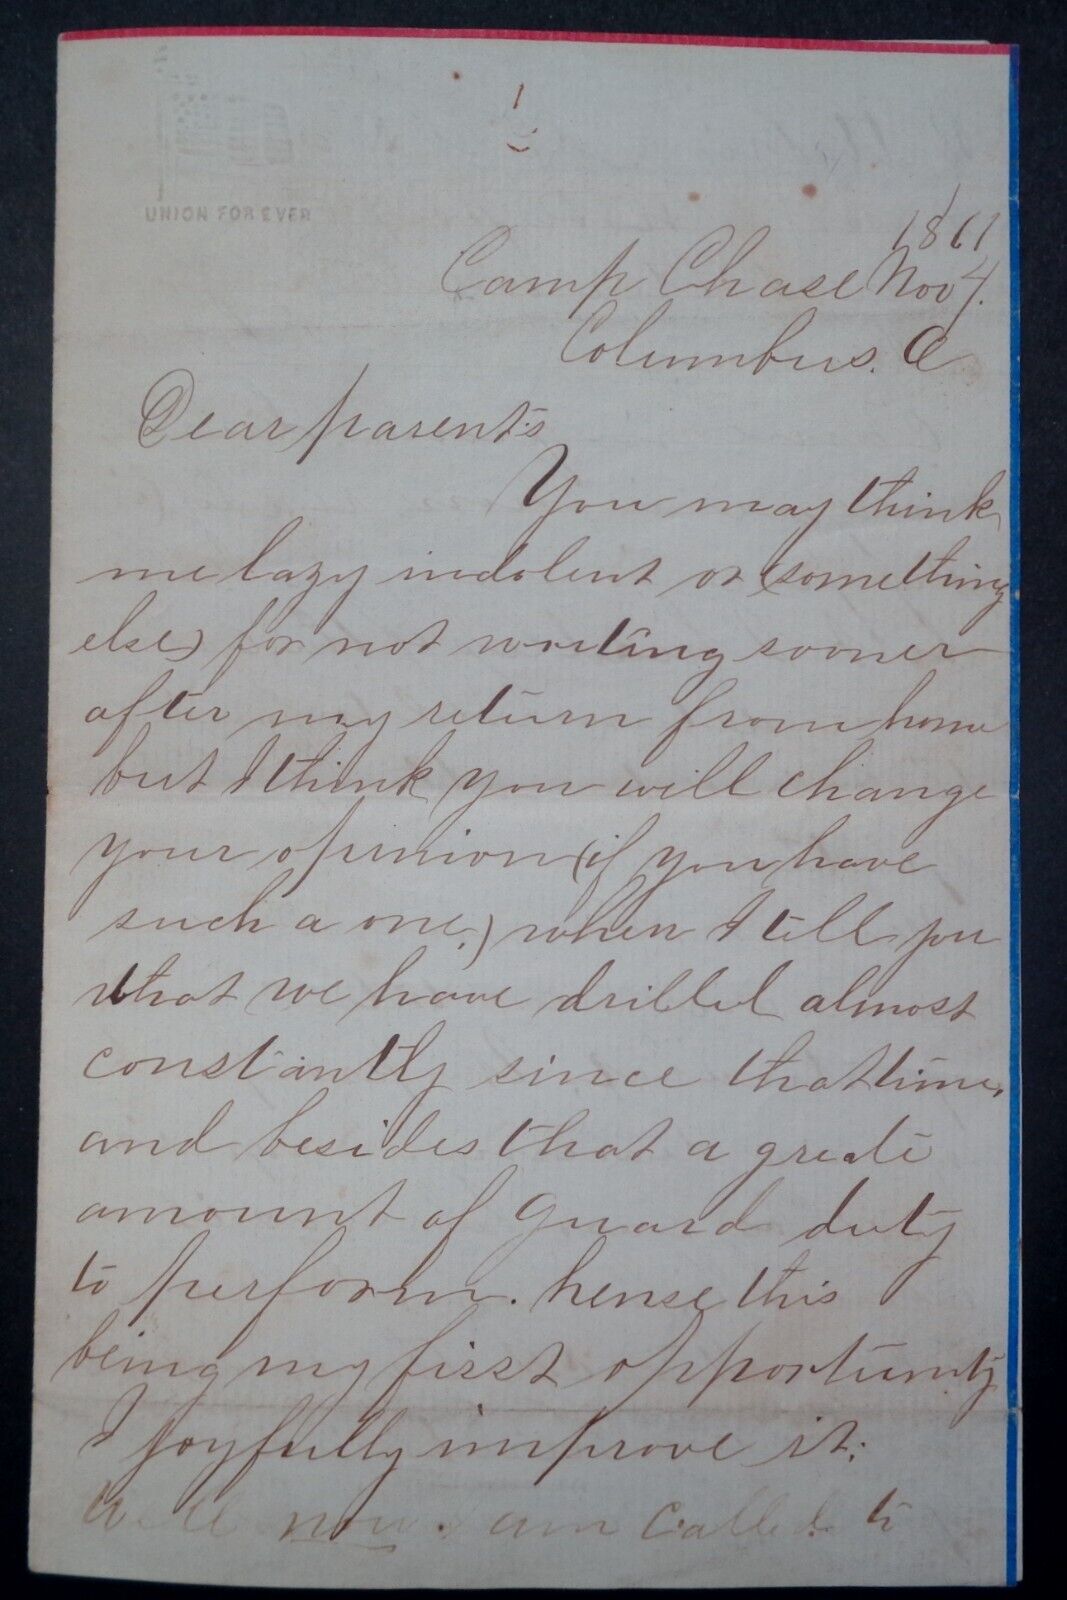 UNION FOREVER
1861
Camp Chase Nov 4.
Columbus. O
Dear parents
You may think
me lazy indolent or (something
else) for not writing sooner
after my return from home
but I think you will change
your opinion (if you have
such a one.) when I tell you
that we have drilled almost
constantly since that time,
and besides that a greate
amount of guard duty
to perform. hense this
being my first opportunity
I joyfully improve it.
Well now I am called to